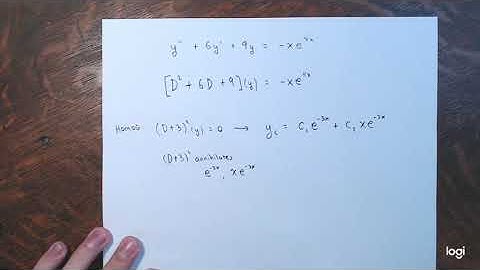 y'' + 6y' + 9y = -xe
[D² + 6D + 9](y) = -xe
Homog (D+3)² (y) = 0 → y_c = c₁e⁻³ˣ + c₂xe⁻³ˣ
(D+3)² annihilates
e⁻³ˣ, xe⁻³ˣ
logi